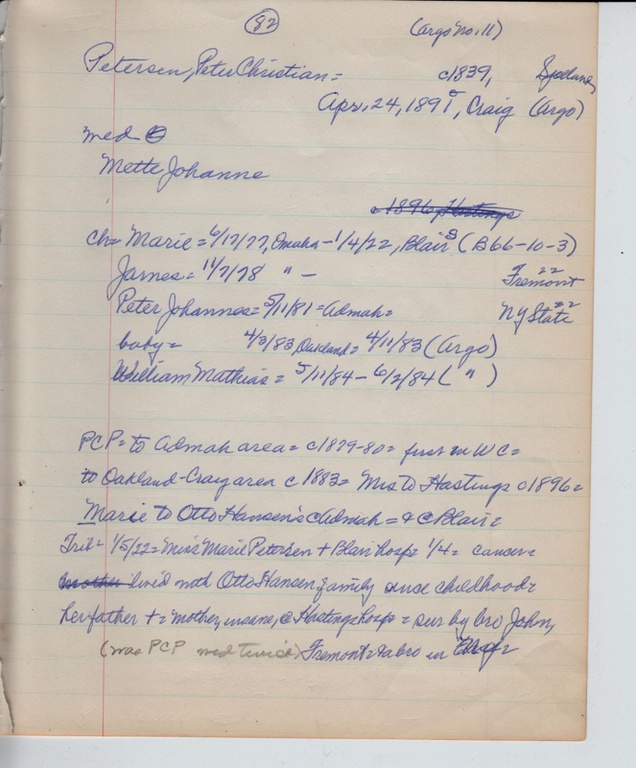 82 (Argo No. 11)
Petersen, Peter Christian = c1839,
Apr. 24, 1895, Craig (Argo)
med
Mette Johanne
c 1896 Hastings
Ch = Marie = 6/12/77, Omaha - 1/4/22, Blair (B66-10-3)
James = 11/7/78 " - Fremont 22
Peter Johannes = 5/11/81 = Admah = NY State 22
baby = 4/3/83, Oakland = 4/11/83 (Argo)
William Mathias = 5/11/84 - 6/2/84 ( " )
PCP = to Admah area = c1879-80 = first in WC =
to Oakland-Craig area c 1883 = Mrs to Hastings c1896 =
Marie to Otto Hansen's c Admah = + c Blair =
Trib = 1/5/22 = Miss Marie Petersen + Blair hosp = 1/4 = cancer =
mother lived with Otto Hansen family since childhood =
her father + = mother, insane, @ Hastings hosp = sur by bro John,
(was PCP med twice) Fremont = + a bro in